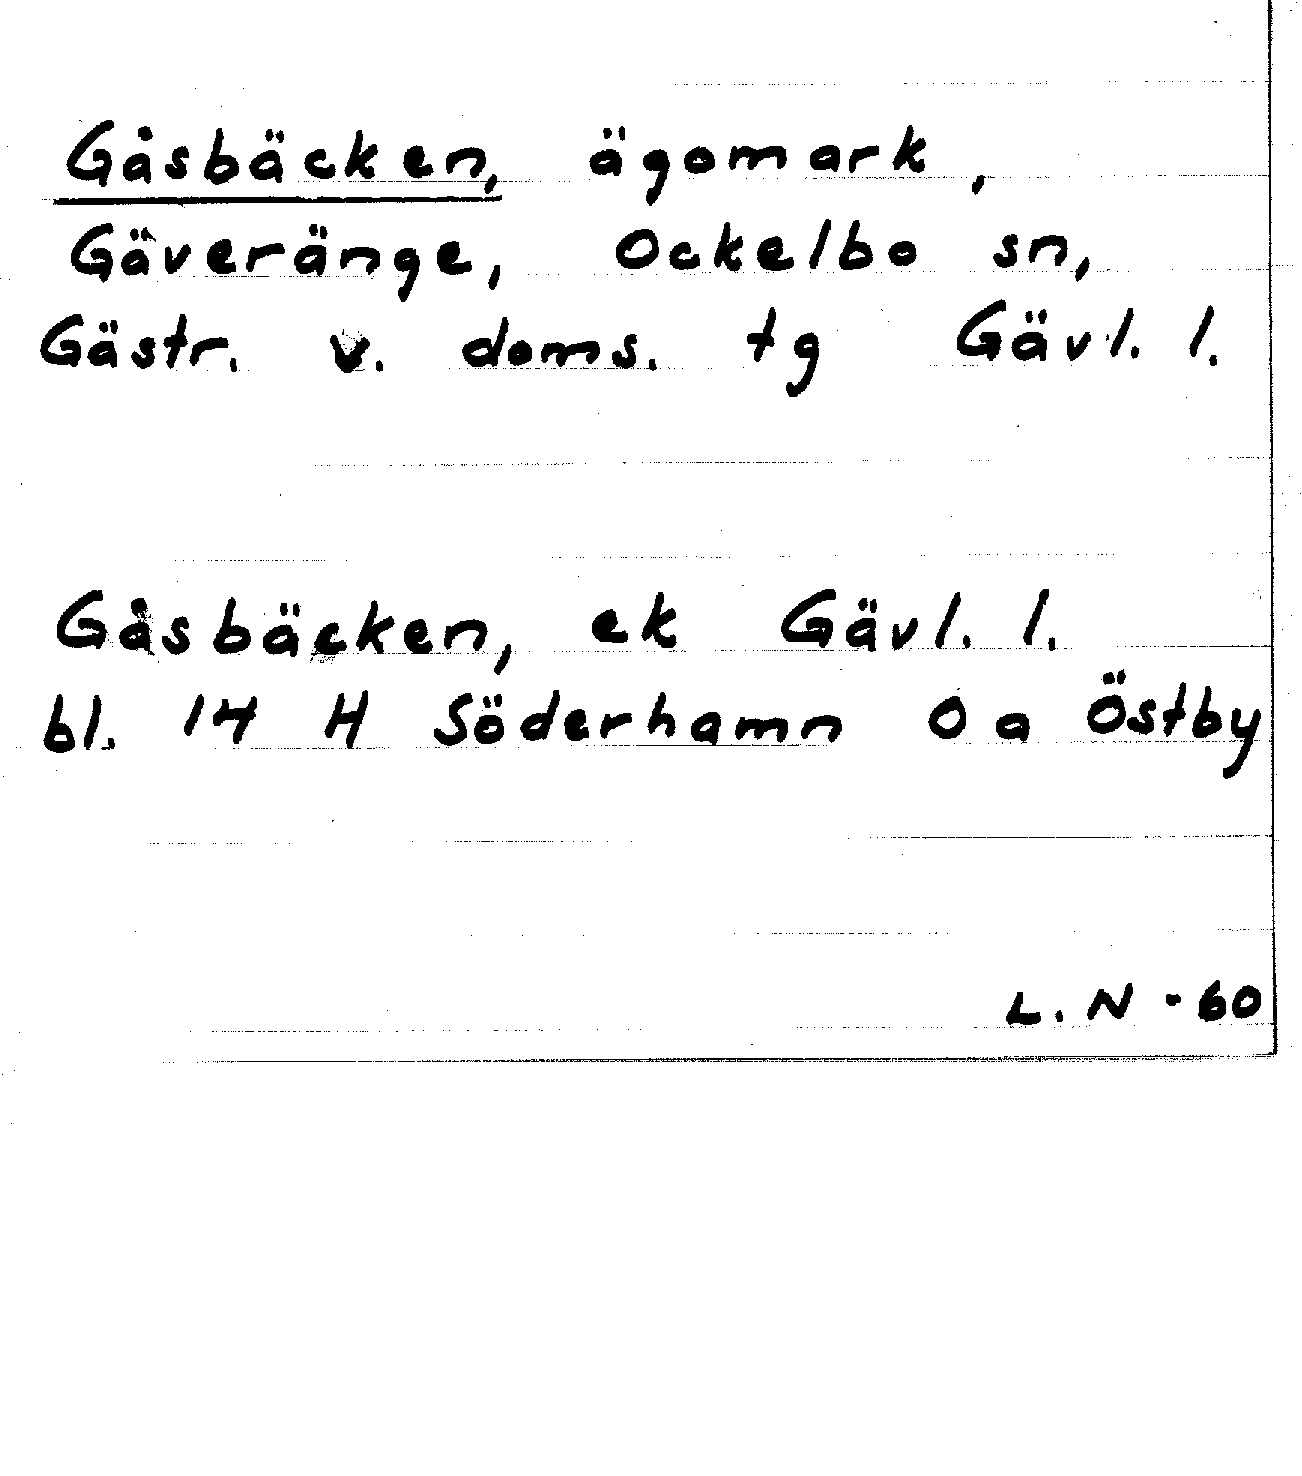 Gåsbäcken, ägomark,
Gäveränge, Ockelbo sn,
Gästr. v. doms. tg Gävl. l.
Gåsbäcken, ek Gävl. l.
bl. 14 H Söderhamn O a Östby
L. N - 60